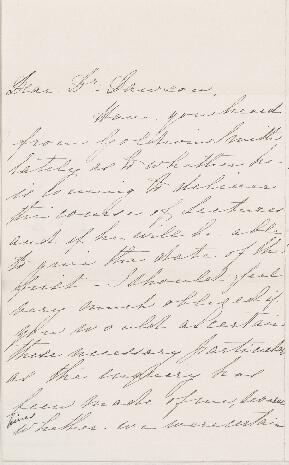 Dear Dr. Dawson,
Have you heard
from Goldwin Smith
lately as to whether he
is coming to deliver
the course of lectures
and if he will be able
to give the date of the
first - I should feel
very much obliged if
you would ascertain
these necessary particulars
as the enquiry has
been made of me, several
times
whether we were certain